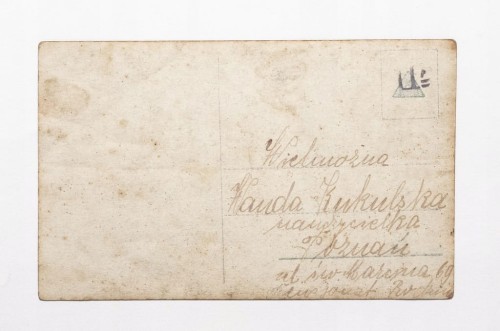 Wielmożna
Wanda Kukulska
nauczycielka
Poznań
ul. św. Marcina